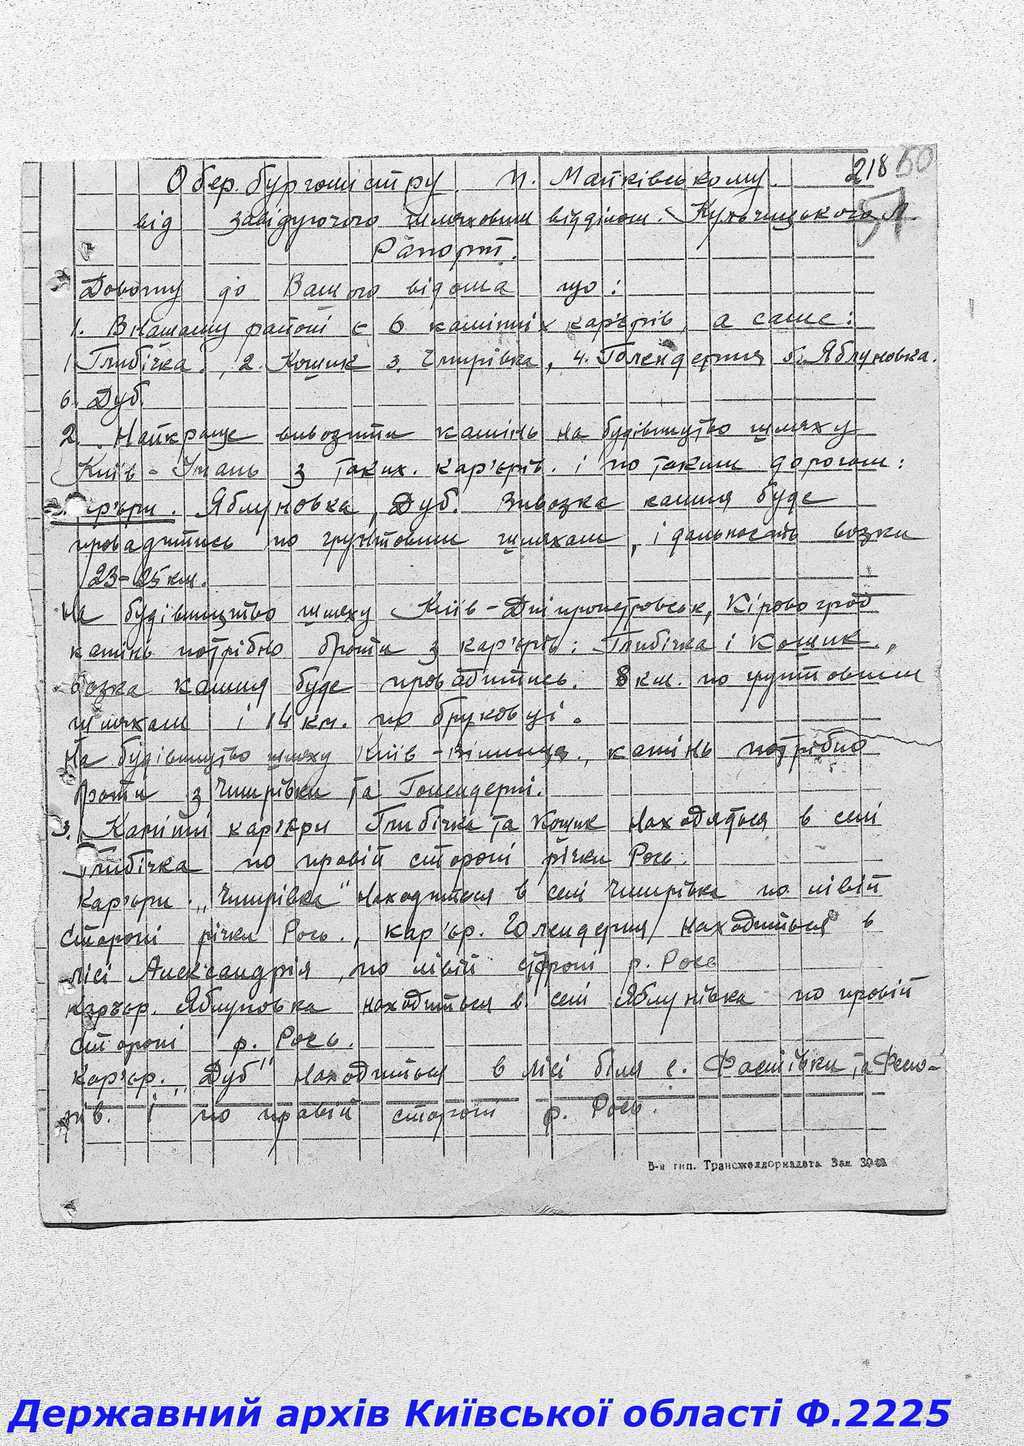 218 60
57
Обер. бургомістру. п. Матківському.
від завідуючого шляховим відділом. Кульчицького Л.
Рапорт.
Довожу до Вашого відома що:
1. В Нашому районі є 6 камінних кар'єрів, а саме:
1 Глибічка., 2. Кошик 3. Чмирівка, 4. Голендерня 5. Яблуновка.
6. Дуб.
2. Найкраще вивозити камінь на будівництво шляху
Київ - Умань з таких. кар'єрів. і по таким дорогам:
Кар'єри. Яблуновка, Дуб. Вивозка каміня буде
провадитись по грунтовим шляхам, і дальность возки
23-25 км.
На будівництво шляху Київ - Дніпропетровськ, Кіровоград
камінь потрібно брати з кар'єрів: Глибічка і Кошик.,
возка каміня буде провадитись. 8 км. по грунтовим
шляхам і 14 км. по бруковці.
На будівництво шляху Київ - Вінниця, камінь потрібно
брати з Чмирівки та Голендерні.
3. Камінні кар'єри Глибічка та Кошик находяться в селі
Глибічка по правій стороні річки Рось.
Кар'єри. „Чмирівка" находиться в селі Чмирівка по лівій
стороні річки Рось., кар'єр. Голендерня находиться в
лісі Александрія, по лівій стороні р. Рось
каръєр. Яблуновка находиться в. селі Яблунівка по правій
стороні р. Рось.
Кар'єр. „Дуб" находиться в лісі біля с. Фастівки, та
і по правій стороні р. Рось.
В-я тип. Трансжелдориздата Зак.
Державний архів Київської області Ф.2225